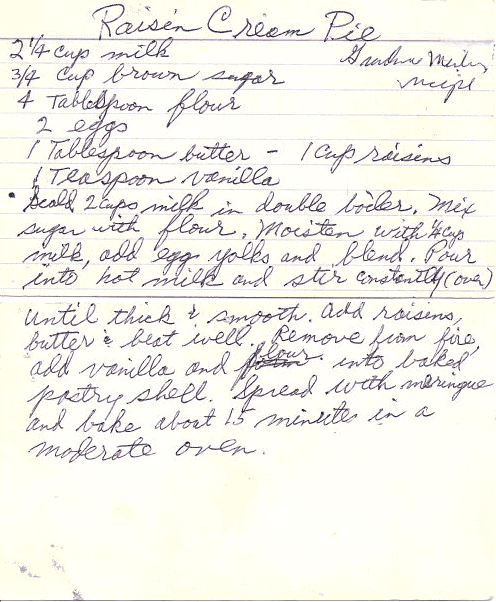 Raisin Cream Pie
2 1/4 cup milk
3/4 cup brown sugar
4 Tablespoon flour
2 eggs
1 Tablespoon butter - 1 cup raisins
1 Teaspoon vanilla
Scald 2 cups milk in double boiler. Mix
sugar with flour. Moisten with 1/4 cup
milk, add egg yolks and blend. Pour
into hot milk and stir constantly (over)
Until thick & smooth. Add raisins,
butter & beat well. Remove from fire,
add vanilla and into baked
pastry shell. Spread with meringue
and bake about 15 minutes in a
moderate oven.